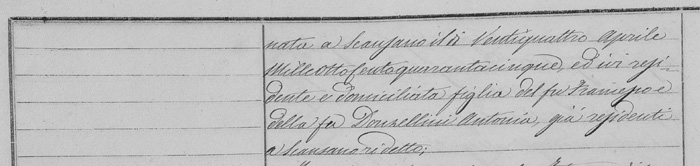 nata a Scansano il dì Ventiquattro Aprile
Milleottocentoquarantacinque, ed ivi resi-
dente e domiciliata figlia del fu Francesco e
della fu Donzellini Antonia, già residenti
a Scansano ridetto;